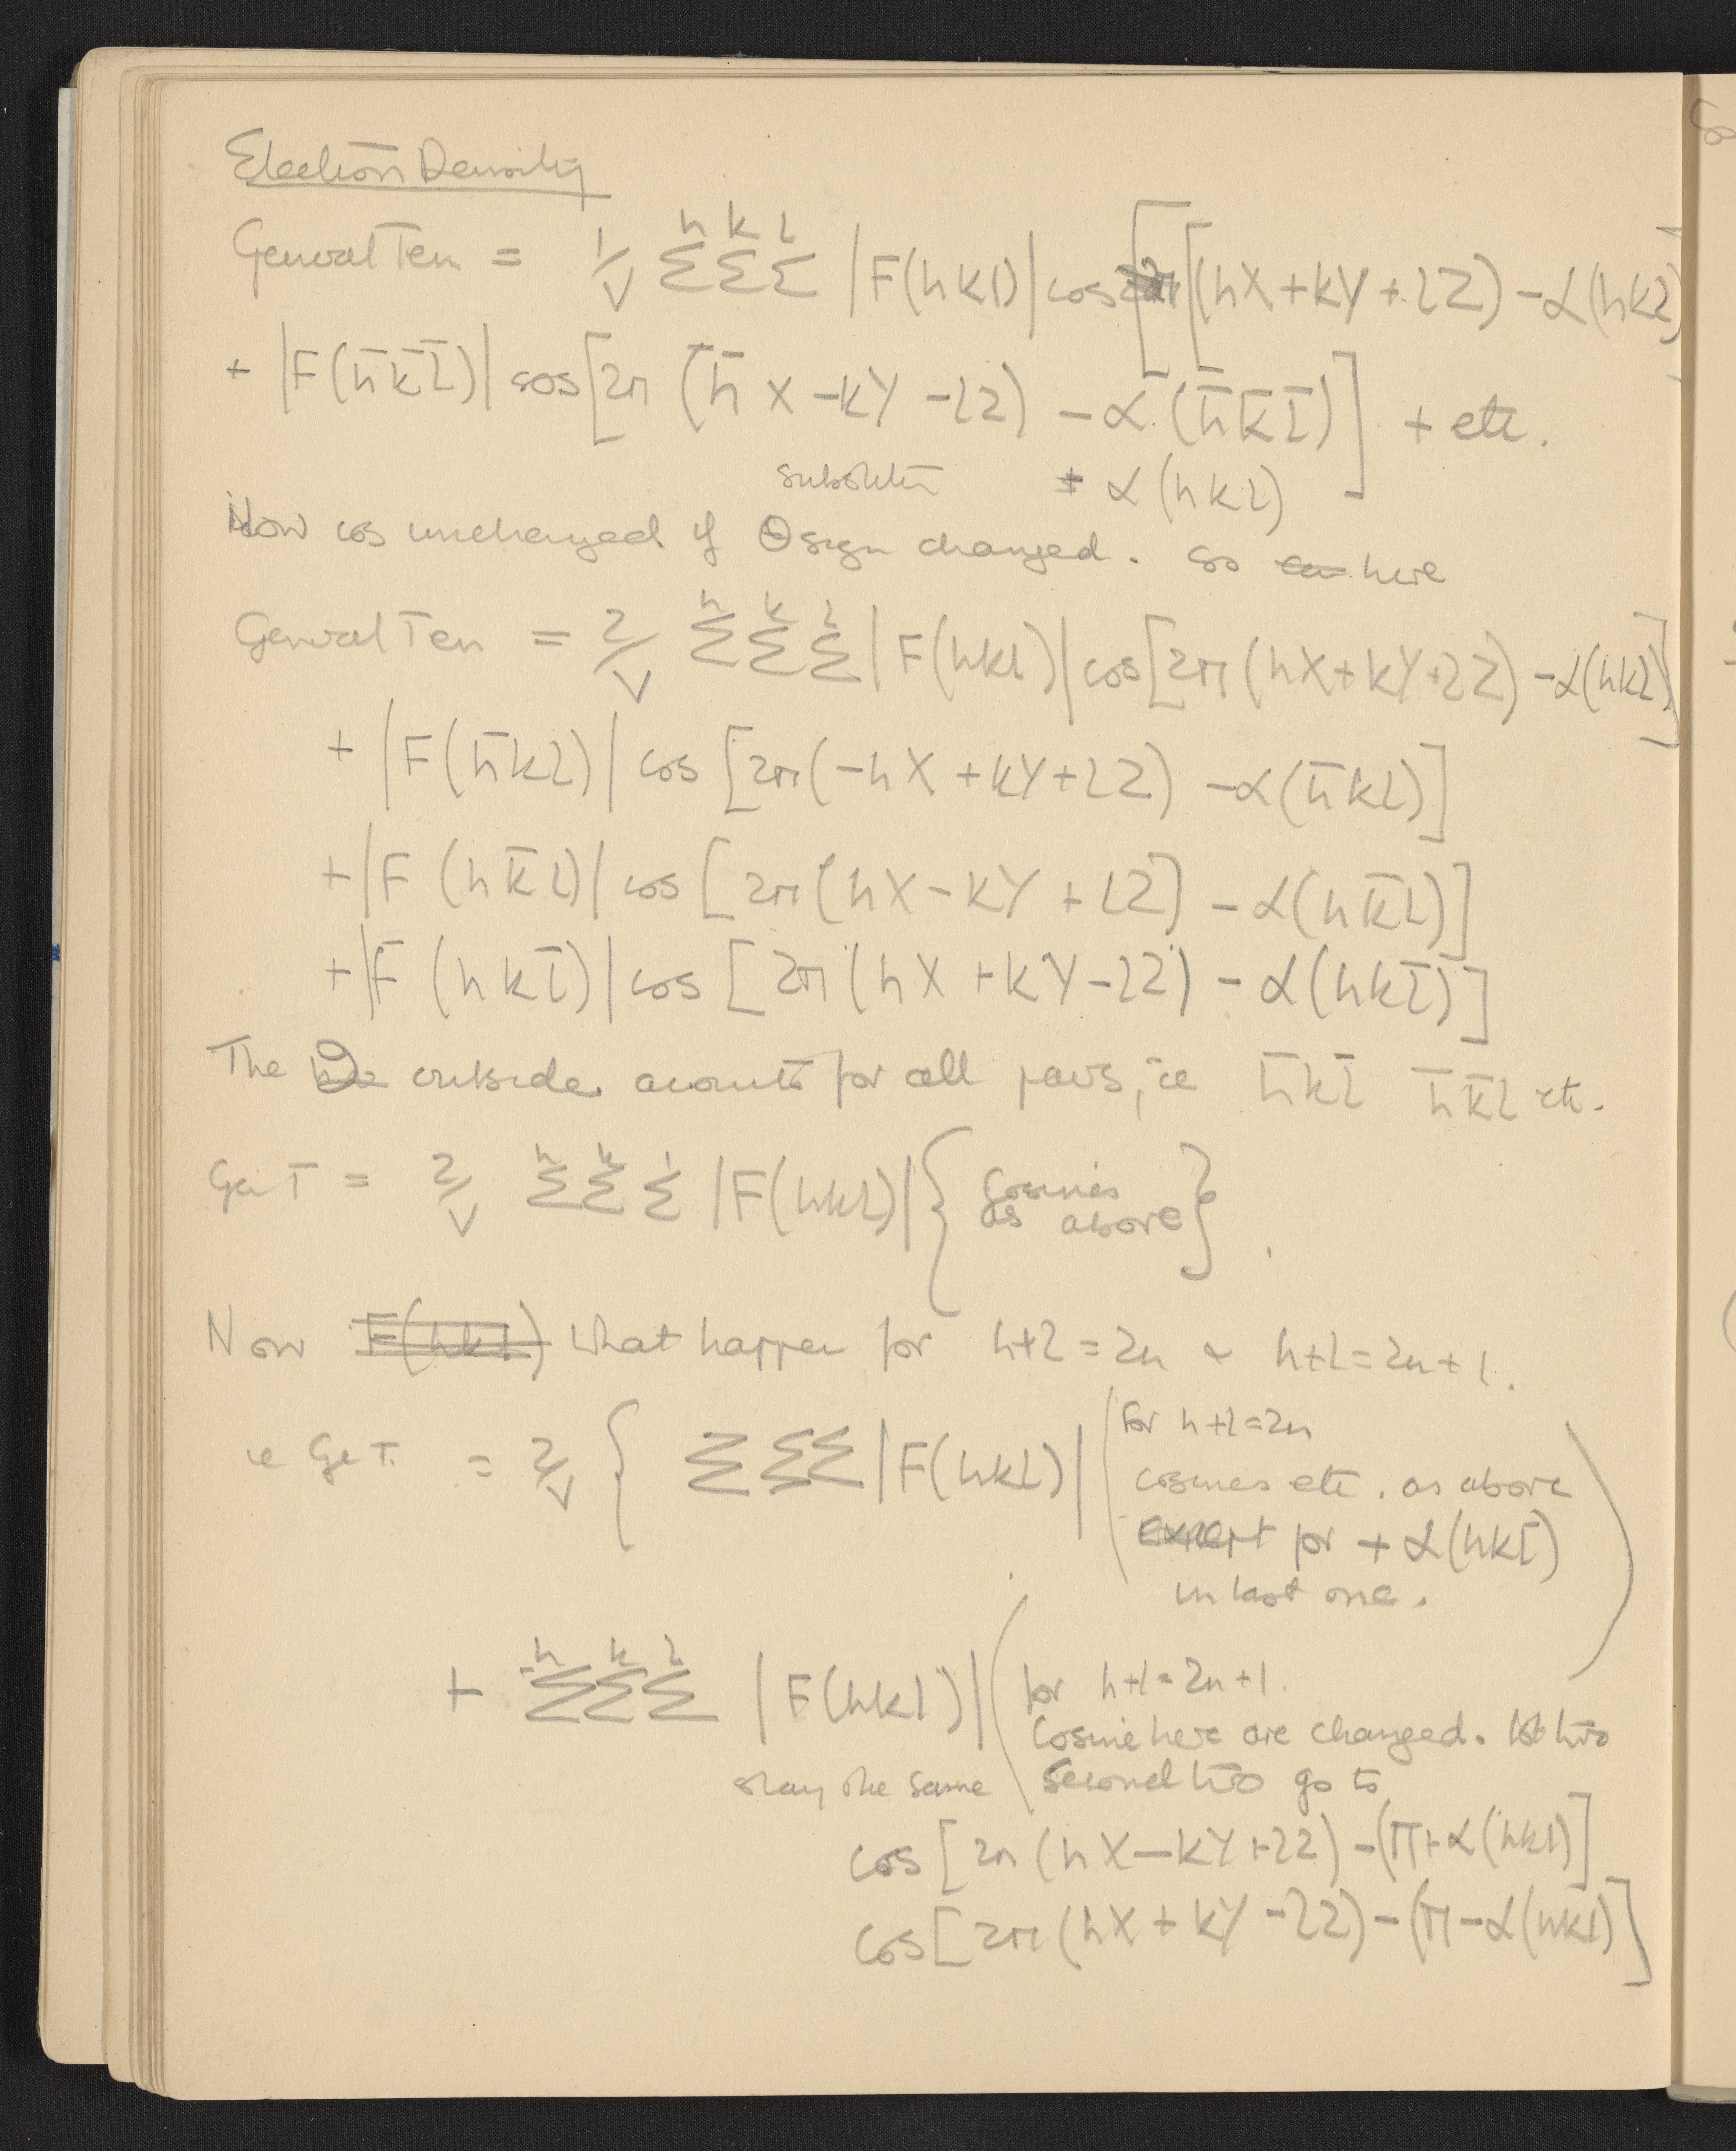 Electron Density
General Term = 1/V Σ^h Σ^k Σ^l |F(hkl)| cos [2π [(hX + kY + lZ) - α(hkl)
+ |F(h̄k̄l̄)| cos [2π (h̄X - kY - lZ) - α (h̄k̄l̄)] + etc.
substitute + α (hkl)
Now cos unchanged if θ sign changed. So here
General Term = 2/V Σ^h Σ^k Σ^l |F(hkl)| cos [2π (hX + kY + lZ) - α(hkl)]
+ |F(h̄kl)| cos [2π (-hX + kY + lZ) - α(h̄kl)]
+ |F (hk̄l)| cos [2π (hX - kY + lZ) - α(hk̄l)]
+ |F (hkl̄)| cos [2π (hX + kY - lZ) - α(hkl̄)]
The 2 outside accounts for all pairs, ie h̄kl̄ h̄k̄l etc.
Gen T = 2/V Σ^h Σ^k Σ^l |F(hkl)| { Cosines
as above }.
Now F(hkl) what happen for h+l = 2n & h+l = 2n+1.
ie Ge T. = 2/V { Σ Σ Σ |F(hkl)| ( for h+l = 2n
cosines etc. as above
except for + α(hkl̄)
in last one. )
+ Σ^h Σ^k Σ^l |F(hkl)| ( for h+l = 2n+1.
Cosine here are changed. 1st two
stay the same second two go to
cos [2π (hX - kY + lZ) - (π + α(hkl)]
cos [2π (hX + kY - lZ) - (π - α(hkl)]